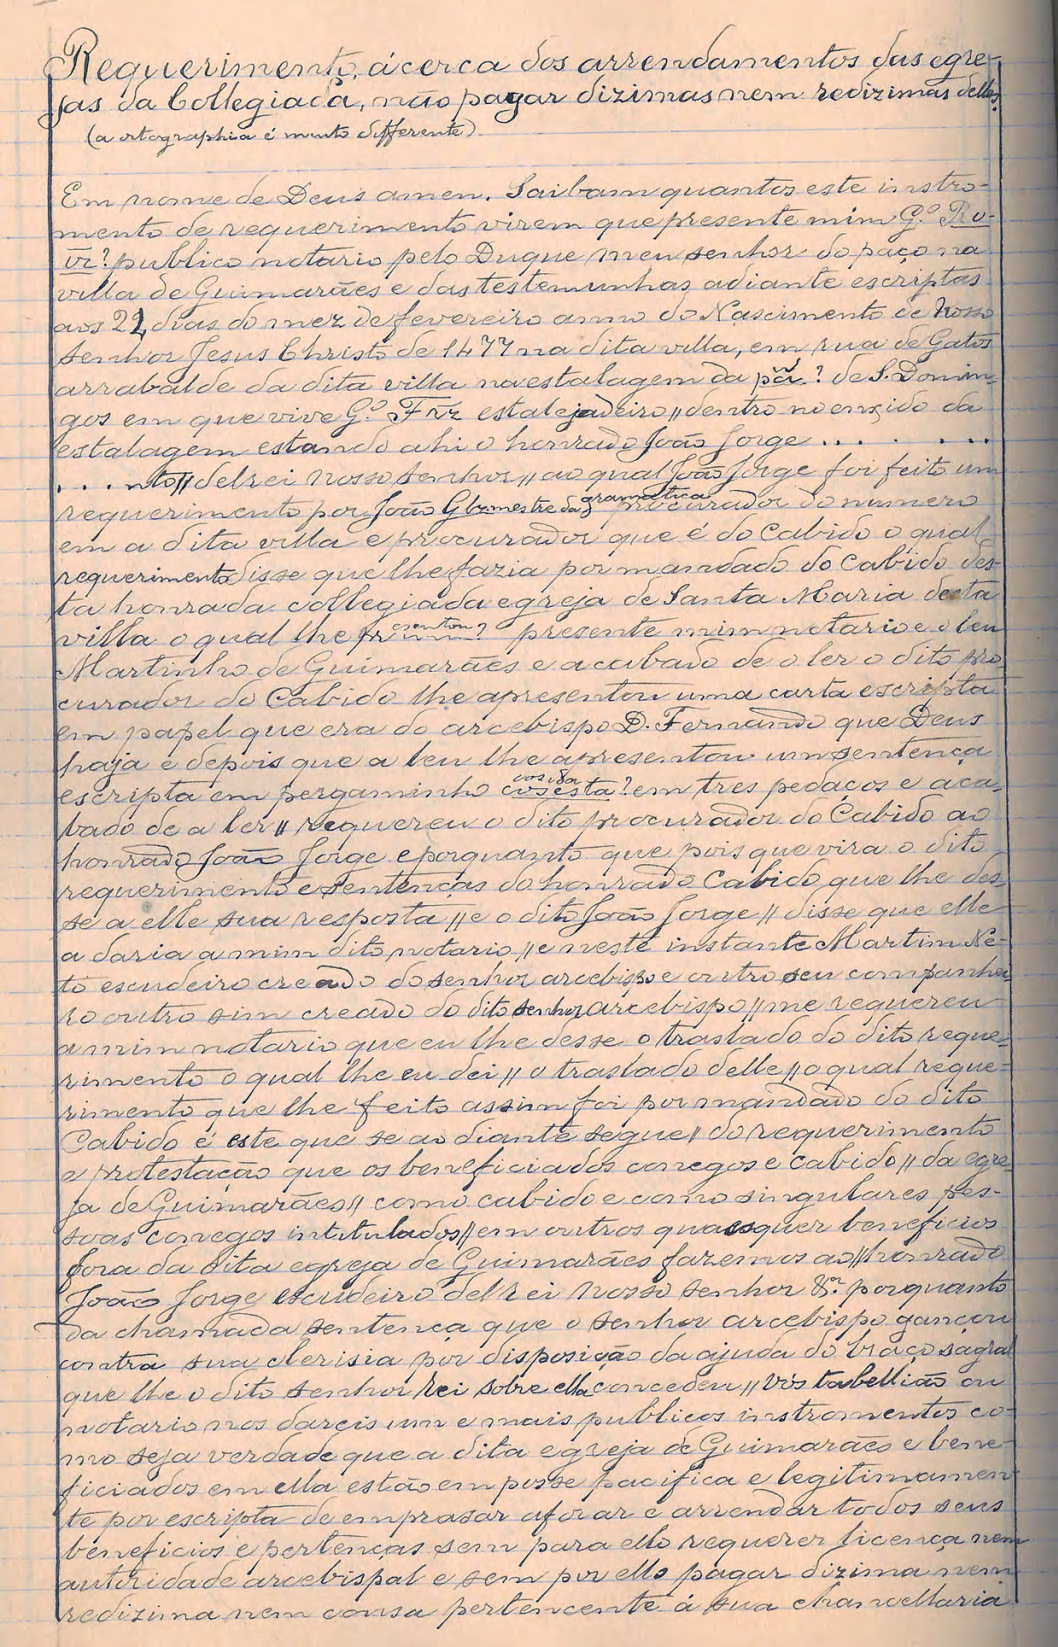 Requerimento, ácerca dos arrendamentos das egre-
jas da Collegiada, não pagar dizimas nem redizimas dellas.
(a ortographia é muito differente)
Em nome de Deus amen. Saibam quantos este instro-
mento de requerimento virem que presente mim G.º Ro-
iz? publico notario pelo Duque meu senhor do paço na
villa de Guimarães e das testemunhas adiante escriptas
aos 22 dias do mez de fevereiro anno do Nascimento de Nosso
Senhor Jesus Christo de 1477 na dita villa, em rua de Gatos
arrabalde da dita villa na estalagem da de S. Domin-
gos em que vive G.º Frz estalejadeiro // dentro no enxido da
estalagem estando ahi o honrado João Jorge ... . ...
. . . nto // delrei nosso senhor // ao qual João Jorge foi feito um
requerimento por João Glz mestre da gramatica procurador do numero
em a dita villa e procurador que é do Cabido o qual
requerimento disse que lhe fazia por mandado do Cabido des-
ta honrada collegiada egreja de Santa Maria desta
villa o qual lhe presente mim notario e o leu
Martinho de Guimarães e acabado de o ler o dito pro
curador do Cabido lhe apresentou uma carta escripta
em papel que era do arcebispo D. Fernando que Deus
haja e depois que a leu lhe apresentou um sentença
escripta em pergaminho cosida cosesta? em tres pedaços e aca-
bado de a ler // requereu o dito procurador do Cabido ao
honrado João Jorge e porquanto que pois que vira o dito
requerimento e sentenças do honrado Cabido que lhe des-
se a elle sua resposta // e o dito João Jorge // disse que elle
a daria a mim dito notario // e neste instante Martim Ne-
to escudeiro creado do senhor arcebispo e outro seu companhei
ro outro sim creado do dito senhor arcebispo // me requereu
a mim notario que eu lhe desse o traslado do dito reque-
rimento o qual lhe eu dei // o traslado delle // o qual reque-
rimento que lhe feito assim foi por mandado do dito
Cabido é este que se ao diante segue // do requerimento
e protestação que os beneficiados conegos e cabido // da egre-
ja de Guimarães // como cabido e como singulares pes-
soas conegos intitulados // em outros quaesquer beneficios
fora da dita egreja de Guimarães fazemos ao // honrado
João Jorge escudeiro delrei nosso senhor &.ª porquanto
da chamada sentença que o senhor arcebispo gançou
contra sua clerisia por disposição da ajuda do braço sagral
que lhe o dito senhor rei sobre ella concedeu // Vós tabellião ou
notario nos dareis um e mais publicos instromentos co-
mo seja verdade que a dita egreja de Guimarães e bene-
ficiados em ella estão em posse pacifica e legitimamen
te por escripta de emprasar aforar e arrendar todos seus
beneficios e pertenças sem para ello requerer licença nem
autoridade arcebispal e sem por ello pagar dizima nem
redizima nem cousa pertencente á sua chancellaria